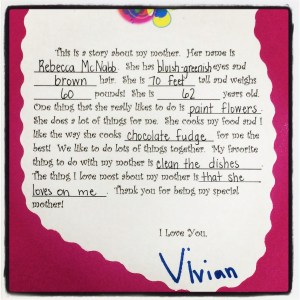 This is a story about my mother. Her name is
Rebecca McNabb. She has bluish-greenish eyes and
brown hair. She is 70 feet tall and weighs
60 pounds! She is 62 years old.
One thing that she really likes to do is paint flowers.
She does a lot of things for me. She cooks my food and I
like the way she cooks chocolate fudge for me the
best! We like to do lots of things together. My favorite
thing to do with my mother is clean the dishes.
The thing I love most about my mother is that she
loves on me. Thank you for being my special
mother!
I Love You,
Vivian